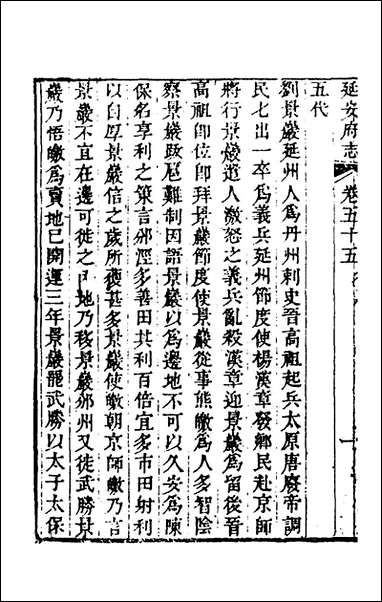 延安府志 卷五十五 一
五代
劉景巖延州人爲丹州刺史晉高祖起兵太原唐廢帝調
民七出一卒爲義兵延州節度使楊漢章發鄉民赴京師
將行景巖遣人激怒之義兵亂殺漢章迎景巖爲留後晉
高祖即位即拜景巖節度使景巖從事熊皦爲人多智陰
察景巖跋扈難制因語景巖以爲邊地不可以久安爲陳
保名享利之策言邠涇多善田其利百倍宜多市田射利
以自厚景巖信之歲所穫甚多景巖使皦朝京師皦乃言
景巖不宜在邊可徙之內地乃移景巖邠州又徙武勝景
巖乃悟皦爲賣地已開運三年景巖罷武勝以太子太保